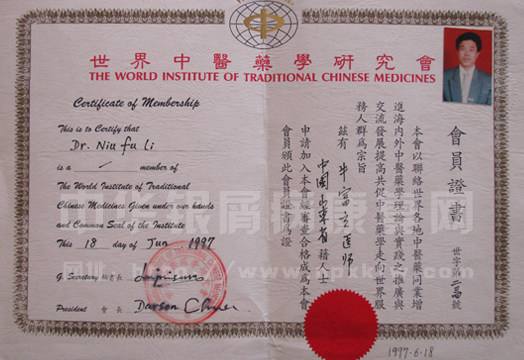 世界中醫藥學研究會
THE WORLD INSTITUTE OF TRADITIONAL CHINESE MEDICINES
Certificate of Membership
This is to Certify that
Dr. Niu fu Li
is a / member of
The World Institute of Traditional
Chinese Medicines Given under our hands
and Common Seal of the Institute
This 18 day of Jun 1997
G. Secretary 秘書長
President 會長
會員證書
世字第
號
本會以聯絡世界各地中醫藥同業增
進海內外中醫藥學理論與實踐之推廣與
交流發展提高共促中醫藥學走向世界服
務人群爲宗旨
茲有 牛富立医师
中國山東省籍人士
申請加入本會經審查合格成爲本會
會員頒此會員證書爲證
1997-6-18